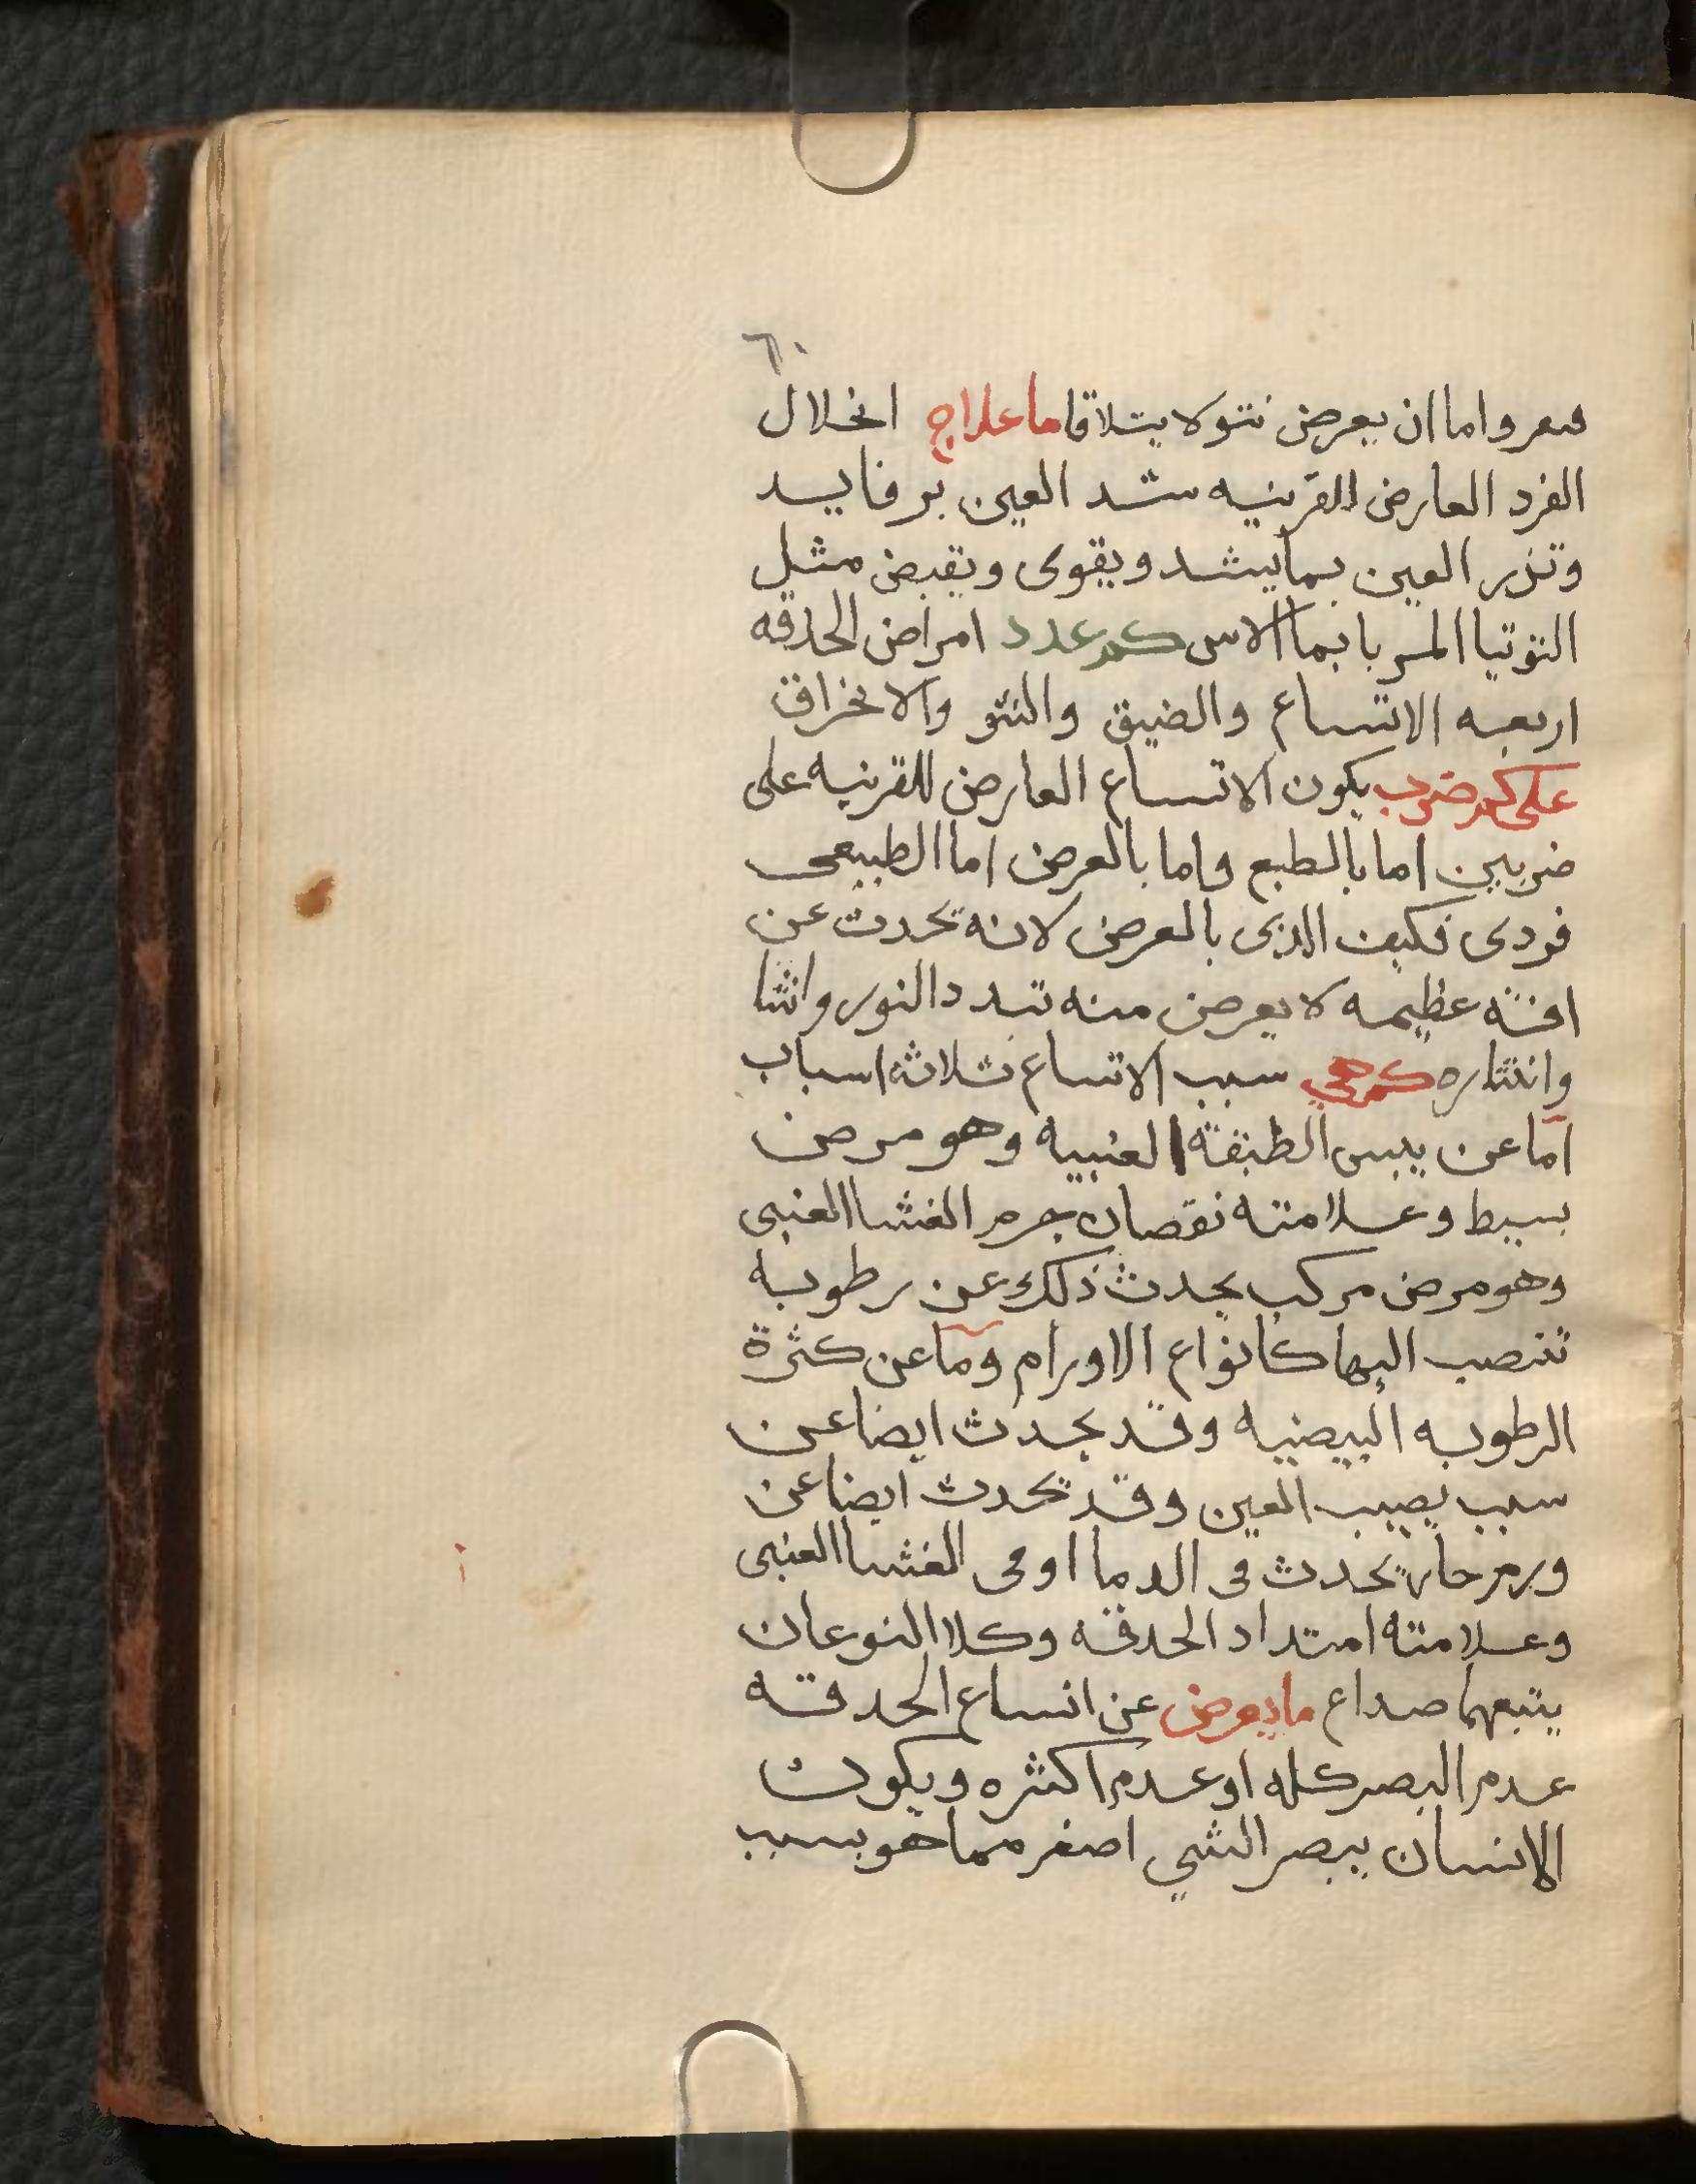 ٦٠
فتعر واما ان يعرض نتو ولا يتلاقا ما علاج انحلال
الفرد العارض القرنيه شد العين برفايد
وتذر العين بما يشد ويقوى ويقبض مثل
التوتيا المربا بما الاس كم عدد امراض الحدقه
اربعه الاتساع والضيق والنتو والانخراق
على كم ضرب يكون الاتساع العارض للقرنيه على
ضربين اما بالطبع واما بالعرض اما الطبيعى
فردى فكيف الذى بالعرض لانه تحدث عن
افته عظيمه لا يعرض منه تبدد النور وانثا
وانتثاره كم هي سبب الاتساع ثلاثه اسباب
اما عن يبس الطبقة العنبيه وهو مرض
بسيط وعلامته نقصان جرم الغشا العنبى
وهو مرض مركب يحدث ذلك عن رطوبه
تنصب اليها كانواع الاورام وما عن كثرة
الرطوبه البيضيه وقد يحدث ايضا عن
سبب يصيب العين وقد تحدث ايضا عن
ورم حار يحدث فى الدما او فى الغشا العنبى
وعلامته امتداد الحدقه وكلا النوعان
يتبعهما صداع ما يعرض عن اتساع الحدقه
عدم البصر كله او عدم اكثره ويكون
الانسان يبصر الشي اصغر مما هو بسبب